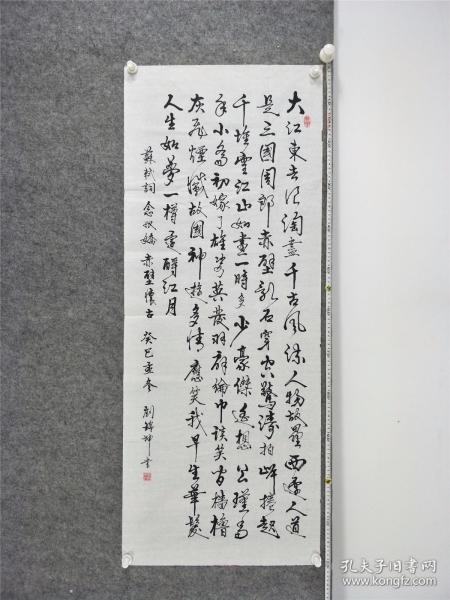 大江東去浪淘盡千古風流人物故壘西邊人道
是三國周郎赤壁亂石穿空驚濤拍岸捲起
千堆雪江山如畫一時多少豪傑遙想公瑾當
年小喬初嫁了雄姿英發羽扇綸巾談笑間檣櫓
灰飛煙滅故國神遊多情應笑我早生華髮
人生如夢一樽還酹江月
蘇軾詞 念奴嬌 赤壁懷古 癸巳孟冬 劉錦坤書
孔夫子旧书网
kongfz.com